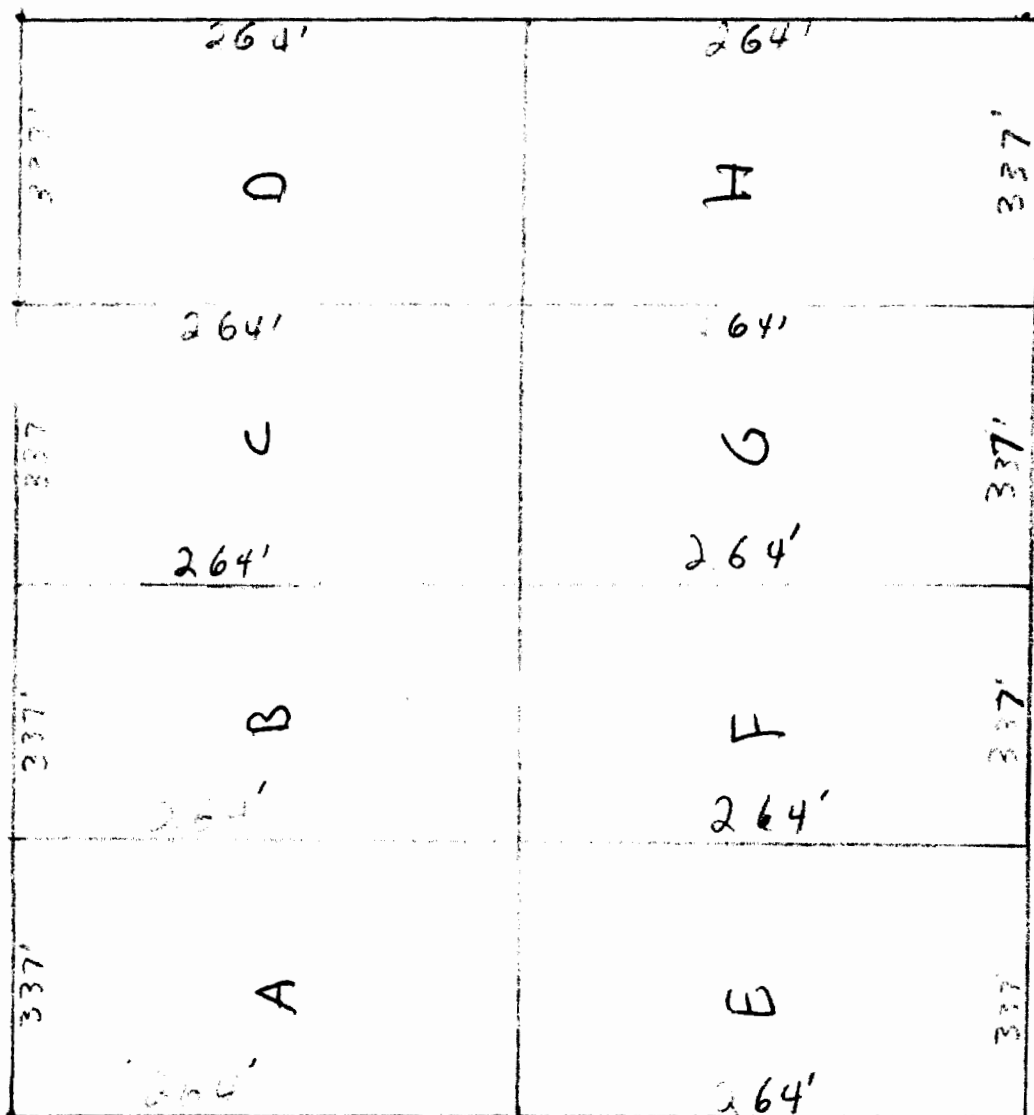 264' 264'
337' D H 337'
264' 64'
337 C G 337'
264' 264'
337' B F 337'
264' 264'
337' A E 337'
264' 264'